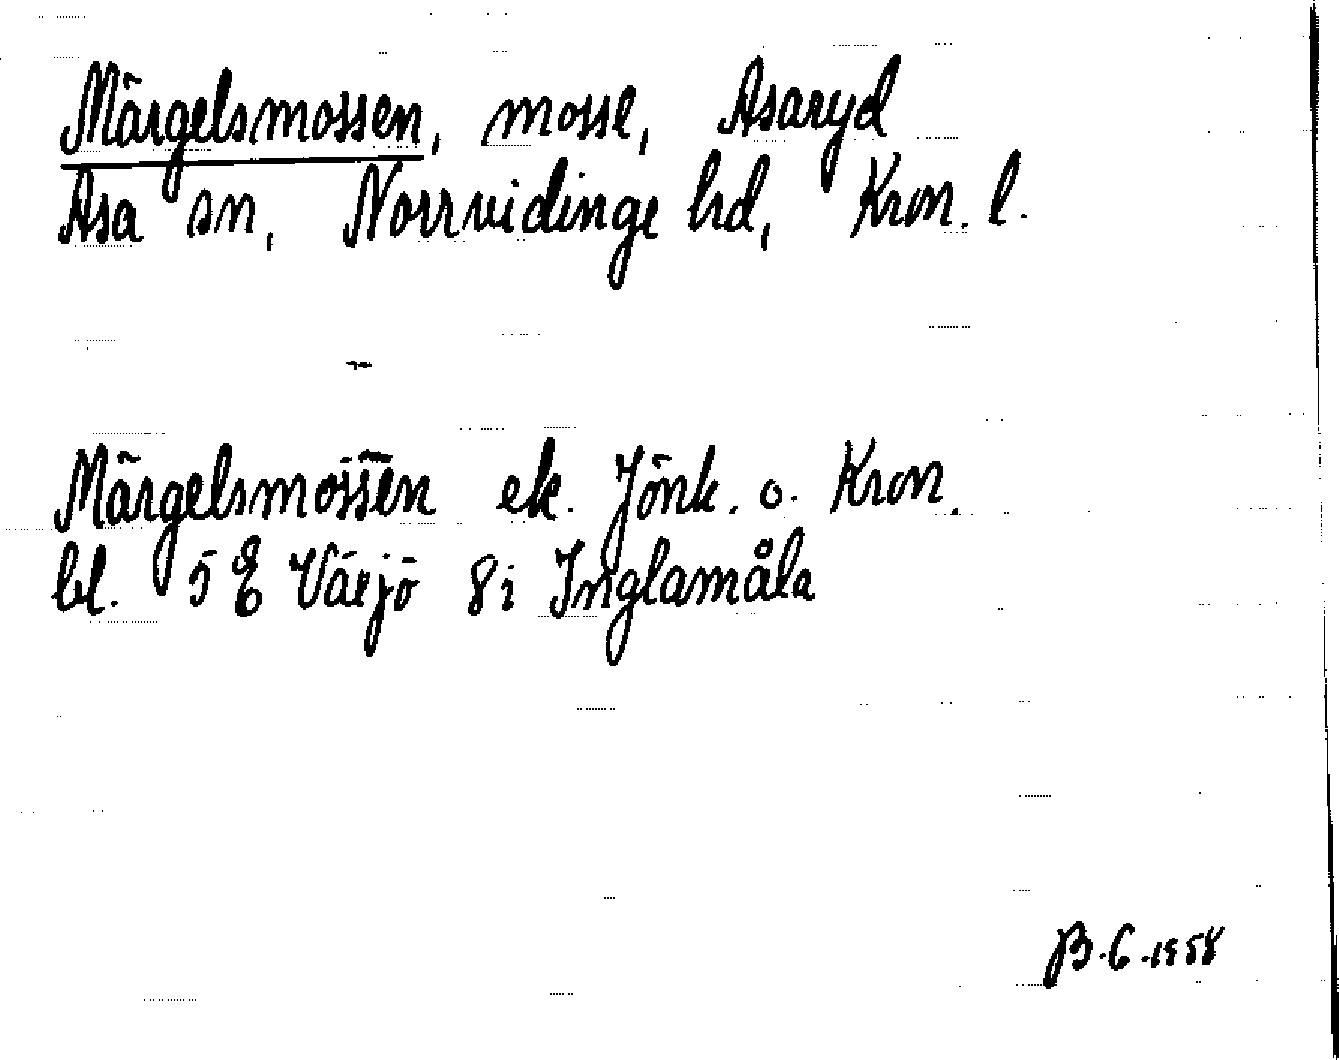 Märgelsmossen, mosse, Asaryd
Asa sn, Norrvidinge hd, Kron. l.
Märgelsmossen ek. Jönk. o. Kron.
bl. 5 E Växjö 8i Inglamåla
B.C. 1958